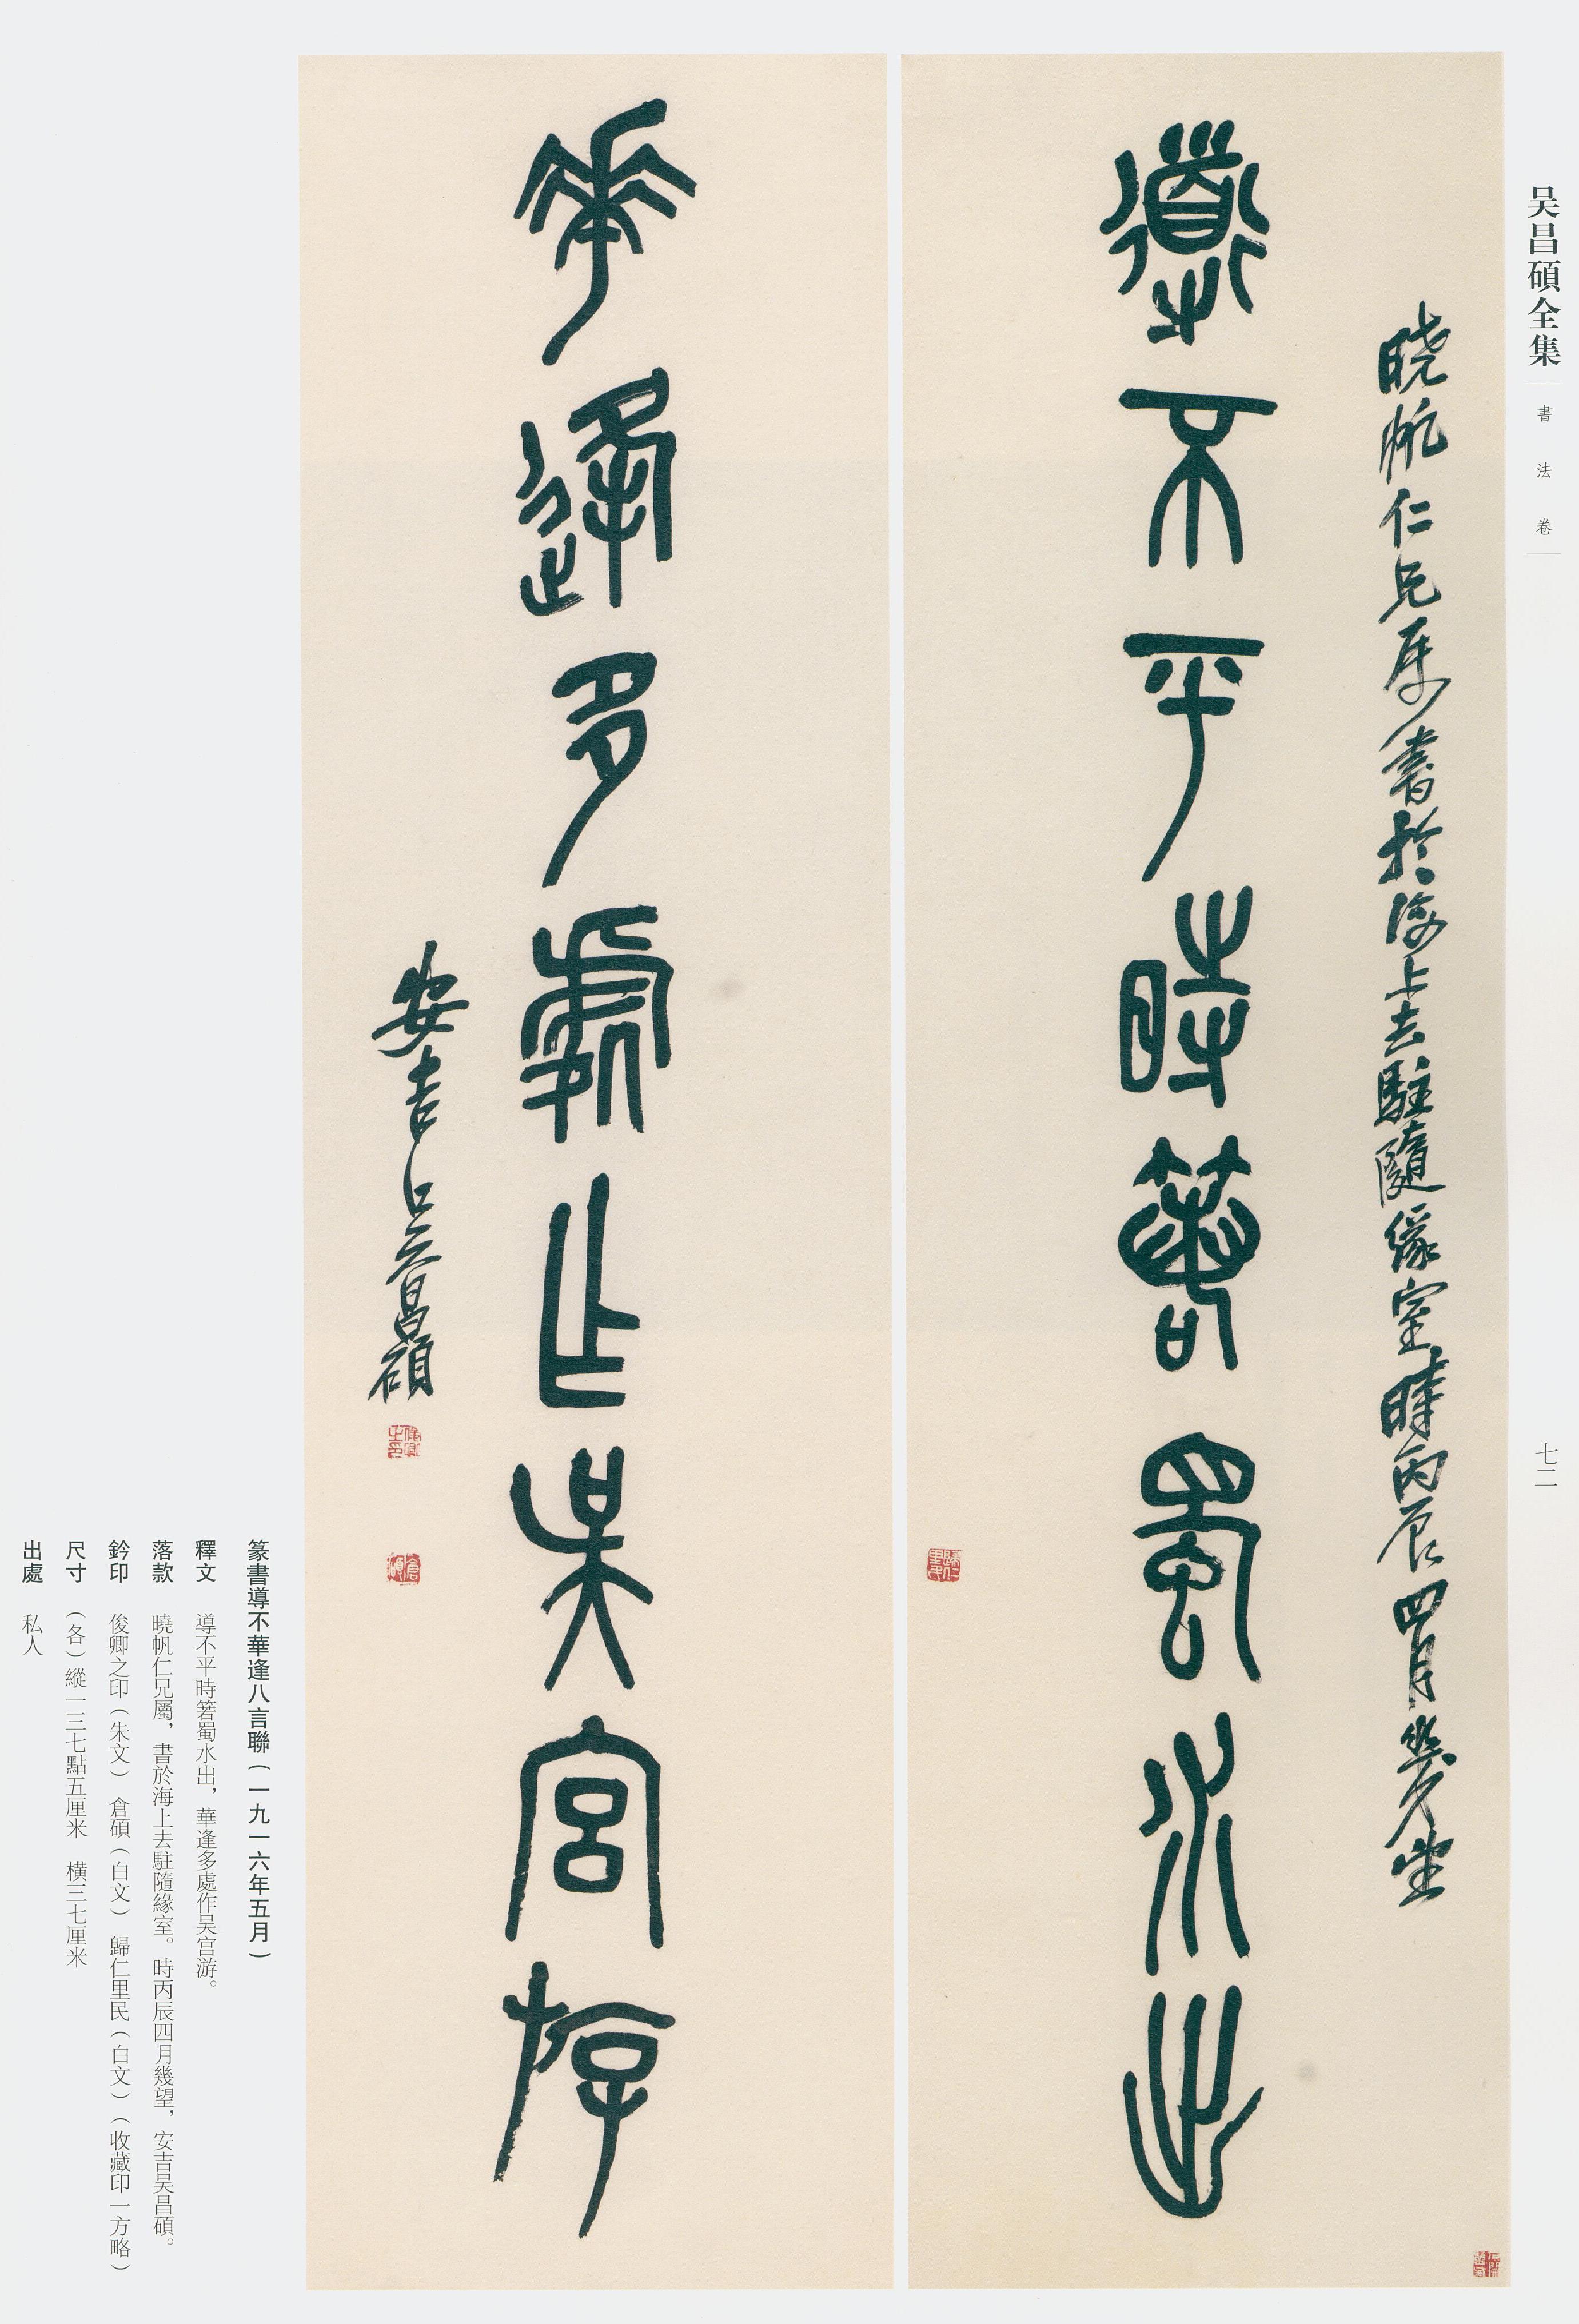 吴昌碩全集
書法卷
七二
曉帆仁兄屬書於海上去駐隨緣室時丙辰四月幾望
導不平時箬蜀水出
華逢多處作吴宮游
安吉吴昌碩
篆書導不華逢八言聯(一九一六年五月)
釋文 導不平時箬蜀水出,華逢多處作吴宫游。
落款 曉帆仁兄屬,書於海上去駐隨緣室。時丙辰四月幾望,安吉吴昌碩。
鈐印 俊卿之印(朱文) 倉碩(白文) 歸仁里民(白文)(收藏印一方略)
尺寸 (各)縱一三七點五厘米 橫三七厘米
出處 私人
俊卿之印
倉碩
歸仁里民